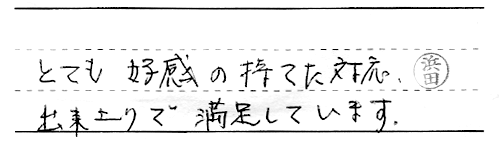 とても 好感の持てた対応、 浜田
出来上りで満足しています.